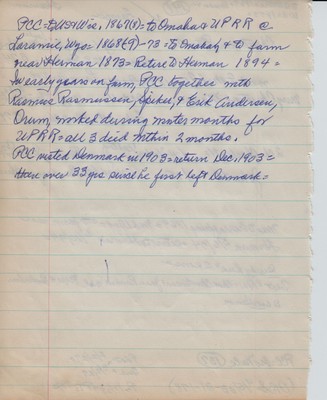 PCC = to USA Wis, 1867(8) = to Omaha & UPRR @
Laramie, Wyo = 1868(9)-73 = to Omaha, & to farm
near Herman 1873 = Retire to Herman 1894 =
early years on farm, PCC together with
Rasmus Rasmussen, Spiker, & Erik Andersen,
Orum, worked during winter months for
UPRR = all 3 died within 2 months.
PCC visited Denmark in 1903 = return Dec. 1903 =
then over 33 yrs since he first left Denmark =